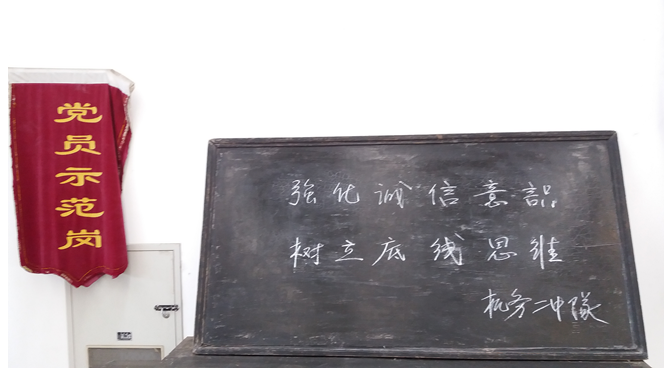 党员示范岗
强化诚信意识
树立底线思维
机务二中隊